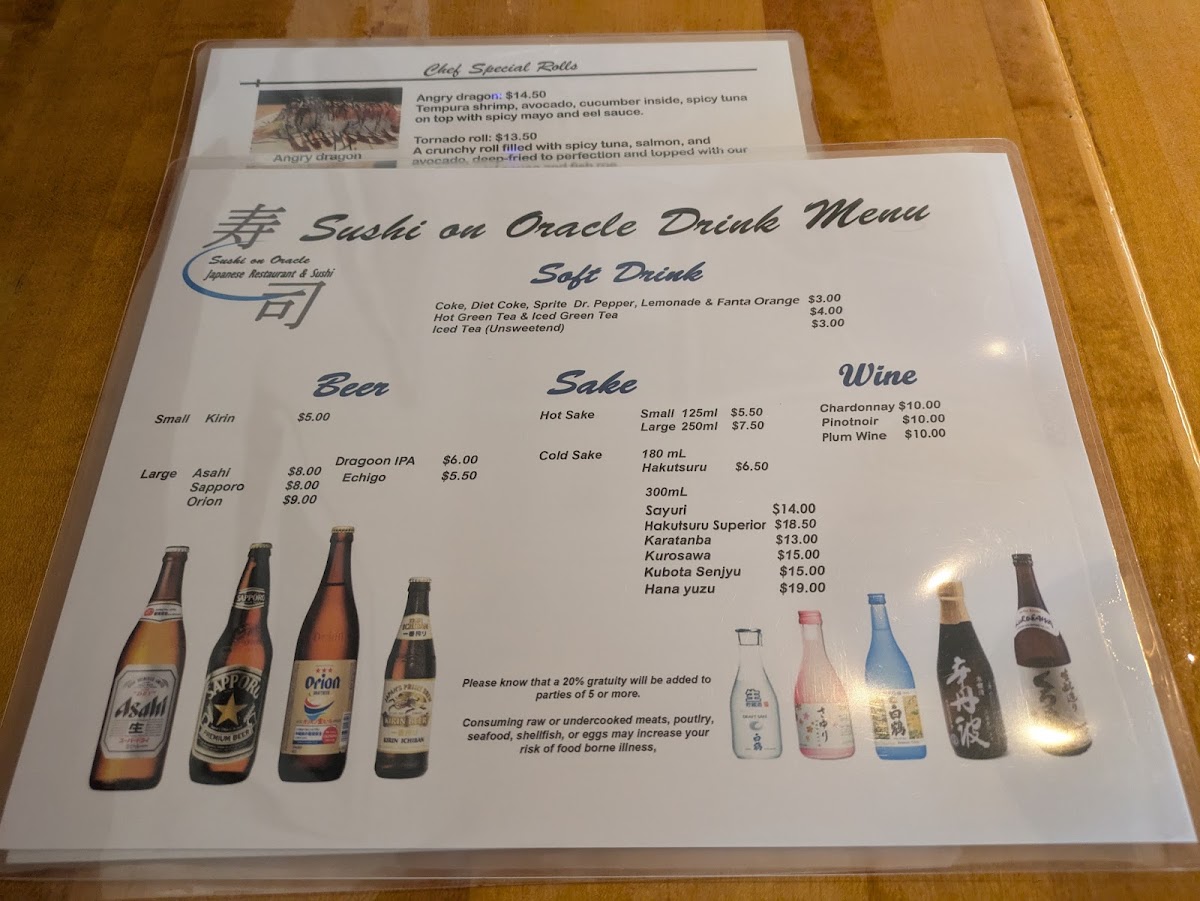 Chef Special Rolls
Angry dragon: $14.50
Tempura shrimp, avocado, cucumber inside, spicy tuna
on top with spicy mayo and eel sauce.
Angry dragon
Tornado roll: $13.50
A crunchy roll filled with spicy tuna, salmon, and
avocado, deep-fried to perfection and topped with our
寿司
Sushi on Oracle
Japanese Restaurant & Sushi
Sushi on Oracle Drink Menu
Soft Drink
Coke, Diet Coke, Sprite Dr. Pepper, Lemonade & Fanta Orange $3.00
Hot Green Tea & Iced Green Tea $4.00
Iced Tea (Unsweetend) $3.00
Beer
Small Kirin $5.00
Large Asahi $8.00
Sapporo $8.00
Orion $9.00
Dragoon IPA $6.00
Echigo $5.50
Sake
Hot Sake Small 125ml $5.50
Large 250ml $7.50
Cold Sake 180 mL
Hakutsuru $6.50
300mL
Sayuri $14.00
Hakutsuru Superior $18.50
Karatanba $13.00
Kurosawa $15.00
Kubota Senjyu $15.00
Hana yuzu $19.00
Wine
Chardonnay $10.00
Pinotnoir $10.00
Plum Wine $10.00
Asahi
生
SAPPORO
SAPPORO
PREMIUM BEER
Orion
Orion
KIRIN ICHIBAN
Please know that a 20% gratuity will be added to
parties of 5 or more.
Consuming raw or undercooked meats, poutlry,
seafood, shellfish, or eggs may increase your
risk of food borne illness,
白鶴
さゆり
白鶴
辛丹波